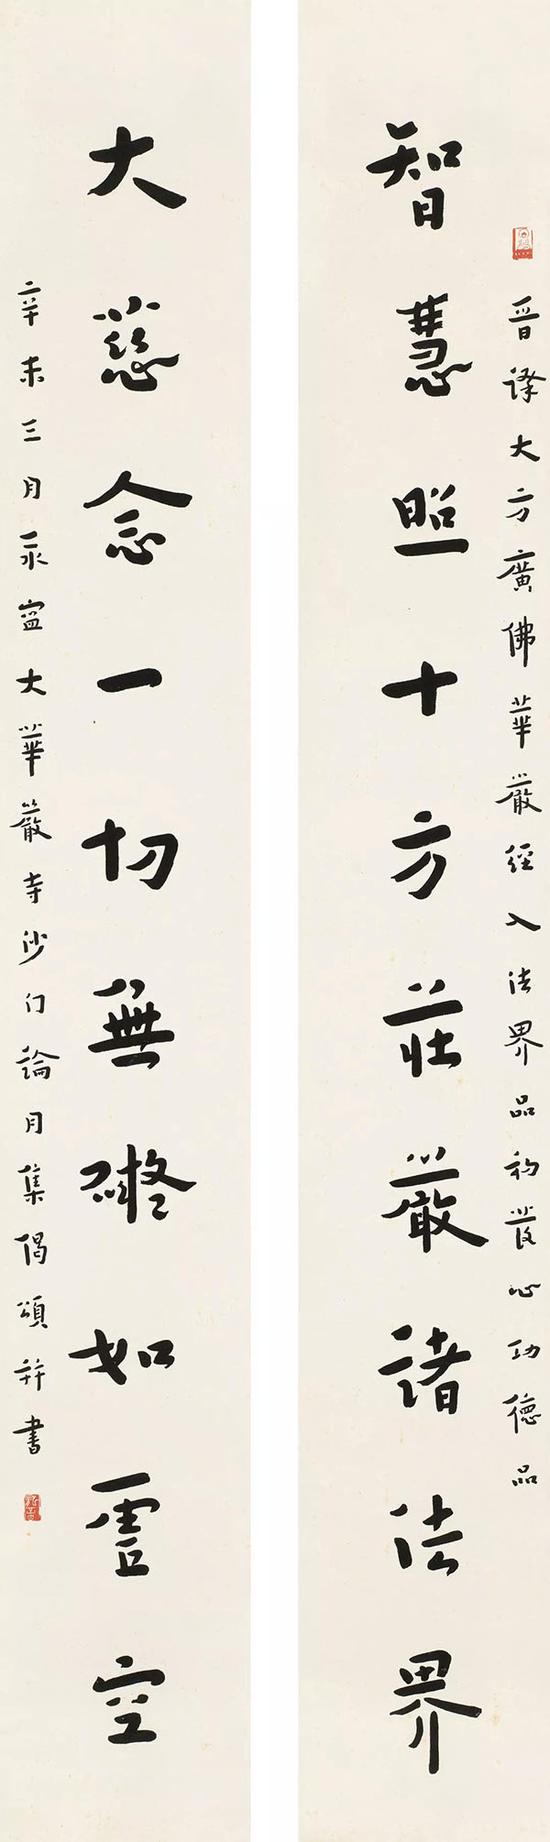 晉譯大方廣佛華嚴經入法界品初發心功德品
智慧照十方莊嚴諸法界
大慈念一切無礙如虛空
辛未三月永寧大華嚴寺沙門論月集偈頌并書